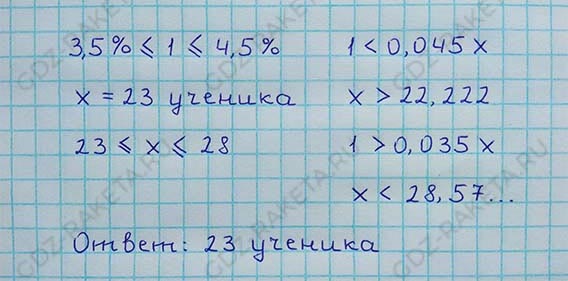 3,5% ⩽ 1 ⩽ 4,5%
x = 23 ученика
23 ⩽ x ⩽ 28
1 < 0,045 x
x > 22,222
1 > 0,035 x
x < 28,57...
Ответ: 23 ученика
GDZ-RAKETA.RU